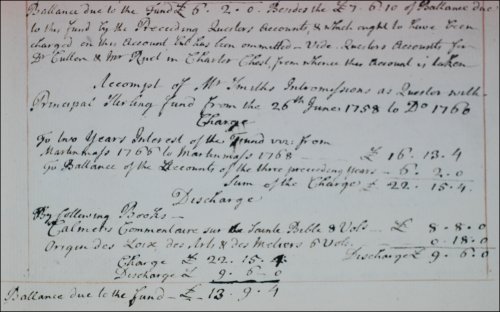 Ballance due to the Fund £ 6. 2. 0. Besides the £ 7. 6. 10 of Ballance due
to this fund by the Preceding Questors Accounts, & which ought to have been
charged on this Account but has been ommitted – Vide Questors Accounts for
Dr Cullen & Mr Ruet in Charter Chest, from whence this Account is taken
Accompt of Mr Smiths Intromissions as Questor with
Principal Stirling Fund from the 26th June 1758 to Do 1760
Charge
To two Years Interest of the Fund viz: from
Martinmass 1756 to Martinmass 1758 — £ 16. 13. 4
To Ballance of the Accounts of the three preceding Years – 6. 2. 0
Sum of the Charge £ 22. 15. 4.
Discharge
By following Books –
Calmets Commentaire sur la Sainte Bible 8 Vols – £ 8. 8. 0
Origin des Loix des Arts & des Metiers 6 Vols. 0. 18. 0
Charge £ 22. 15. 4 Discharge £ 9. 6. 0
Discharge £ 9. 6. 0
Ballance due to the Fund – £ 13. 9. 4